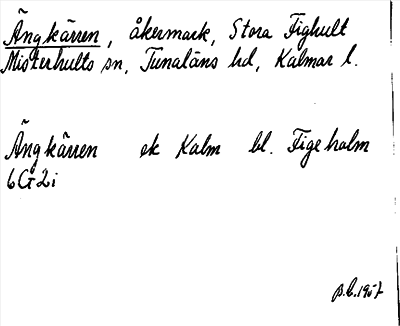 Ängkärren, åkermark, Stora Fighult
Misterhults sn, Tunaläns hd, Kalmar l.
Ängkärren ek Kalm bl. Figeholm
6G2i
1967